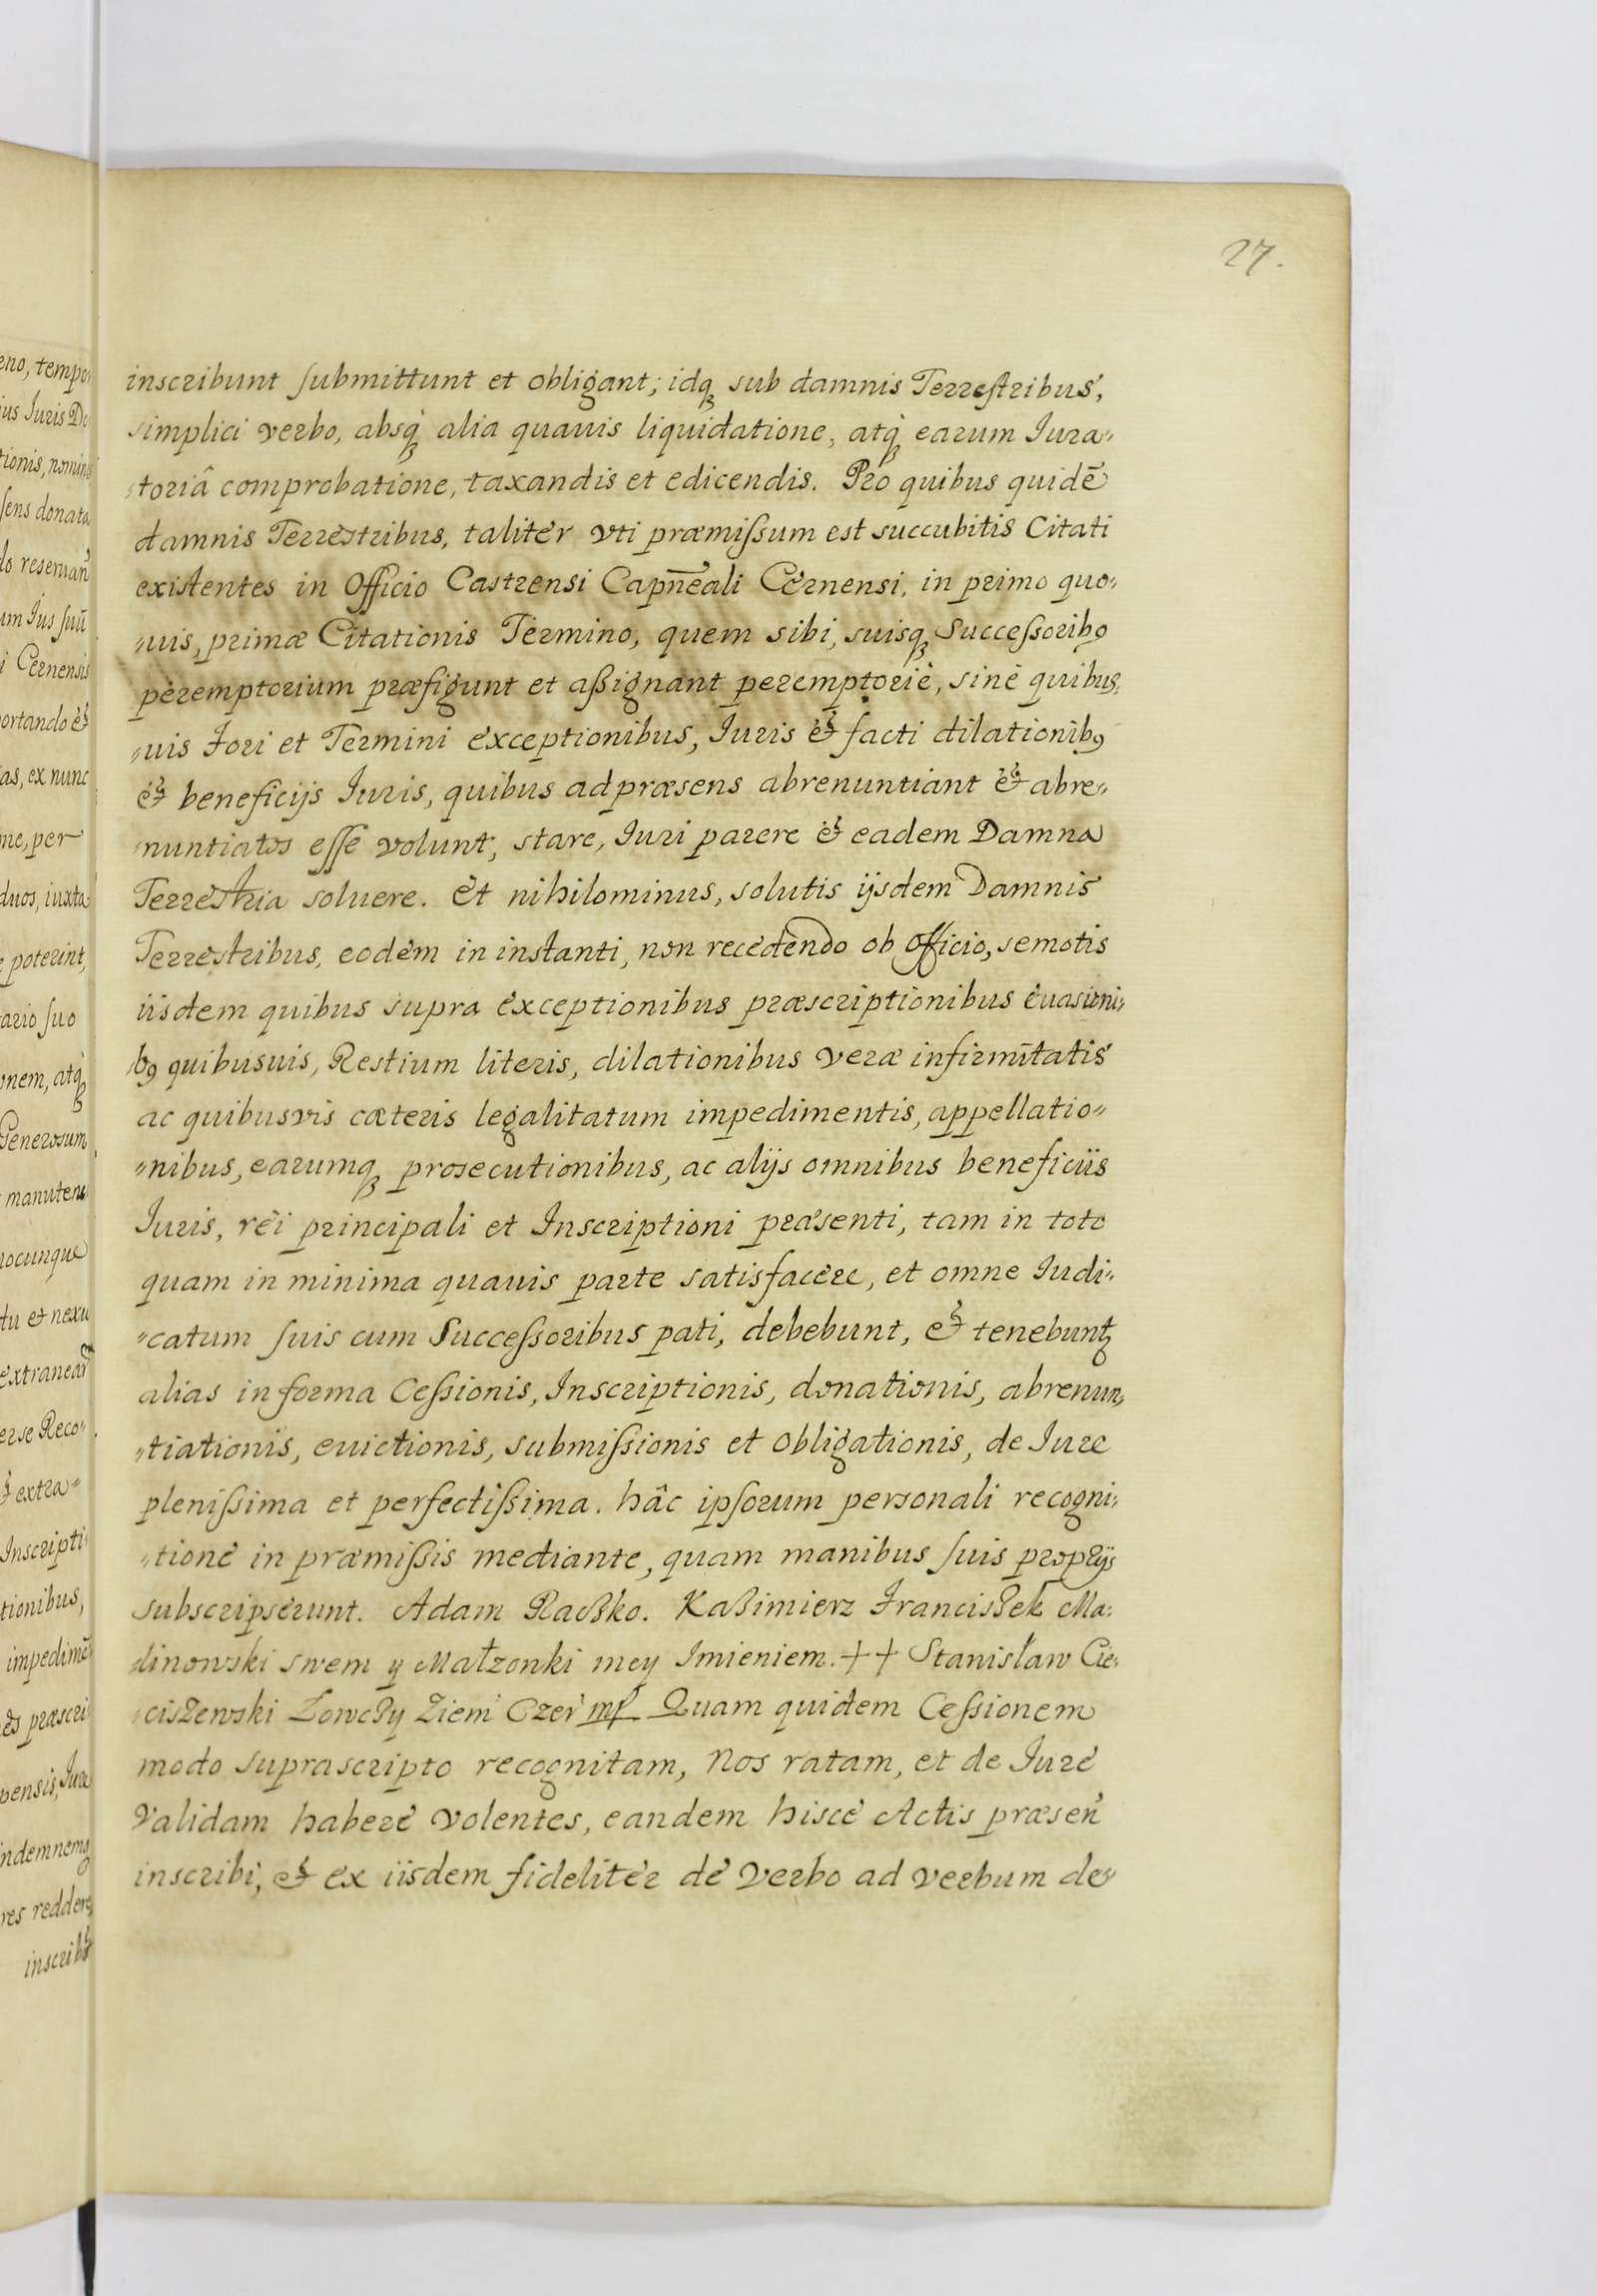 27.
inscribunt submittunt et obligant; idq₃ sub damnis Terrestribus,
simplici verbo, absq₃ alia quauis liquidatione, atq₃ earum Iura„
„toriâ comprobatione, taxandis et edicendis. Pro quibus quidē
damnis Terrestribus, taliter vti præmissum est succubitis Citati
existentes in Officio Castrensi Capn̄eali Cernensi, in primo quo„
„uis, primæ Citationis Termino, quem sibi, suisq₃ Successorib9
peremptorium præfigunt et aßignant peremptoriè, sinè quibus„
„uis Fori et Termini exceptionibus, Iuris & facti dilationib9
& beneficijs Iuris, quibus ad præsens abrenuntiant & abre„
„nuntiatos esse volunt, stare, Iuri parere & eadem Damna
Terrestria soluere. Et nihilominus, solutis ijsdem Damnis
Terrestribus, eodem in instanti, non recedendo ob Officio, semotis
iisdem quibus supra exceptionibus præscriptionibus euasioni„
b9 quibusuis, Restium literis, dilationibus veræ infirmitatis
ac quibusvis cæteris legalitatum impedimentis, appellatio„
„nibus, earumq₃ prosecutionibus, ac alijs omnibus beneficiis
Iuris, rèi principali et Inscriptioni præsenti, tam in toto
quam in minima quauis parte satisfacere, et omne Iudi„
„catum suis cum Successoribus pati, debebunt, & tenebunt₃
alias in forma Cessionis, Inscriptionis, donationis, abrenun„
„tiationis, euictionis, submissionis et obligationis, de Iure
plenissima et perfectissima. hâc ipsorum personali recogni„
„tione in præmissis mediante, quam manibus suis proprijs
subscripserunt. Adam Raßko. Kaßimierz Franciszek Ma„
„linowski swem y Małzonki mey Imieniem. ++ Stanisław Cie„
„ciszewski Łowczy Ziemi Czer mp Quam quidem Cessionem
modo suprascripto recognitam, Nos ratam, et de Iure
validam habere volentes, eandem hisce Actis præsen̄
inscribi, & ex iisdem fideliter de verbo ad verbum de„